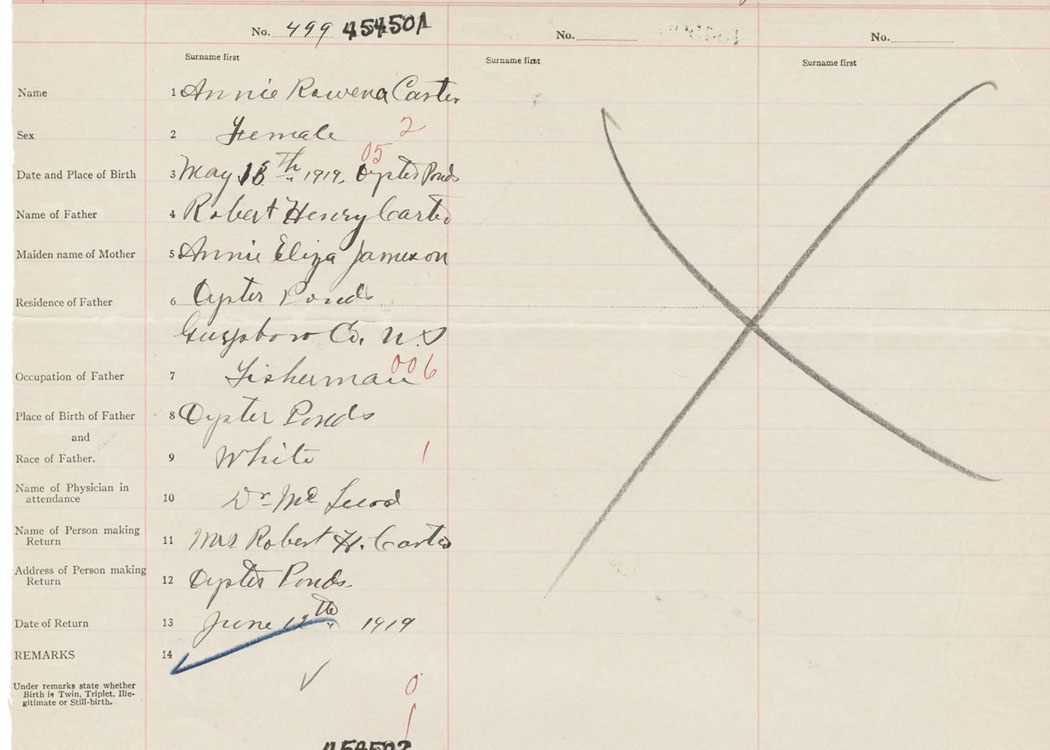 No. 499 454501 No. No.
Surname first Surname first Surname first
Name 1 Annie Rowena Carter
Sex 2 Female 2
05
Date and Place of Birth 3 May 18th 1919, Oyster Ponds
Name of Father 4 Robert Henry Carter
Maiden name of Mother 5 Annie Eliza Jameson
Residence of Father 6 Oyster Ponds
Guysboro Co, N.S
006
Occupation of Father 7 Fisherman
Place of Birth of Father 8 Oyster Ponds
and
Race of Father. 9 White 1
Name of Physician in
attendance 10 Dr Mc
Name of Person making
Return 11 Mrs Robert H. Carter
Address of Person making
Return 12 Oyster Ponds
Date of Return 13 June 12th 1919
REMARKS 14
Under remarks state whether
Birth is Twin, Triplet, Ille-
gitimate or Still-birth.
0
1
454502